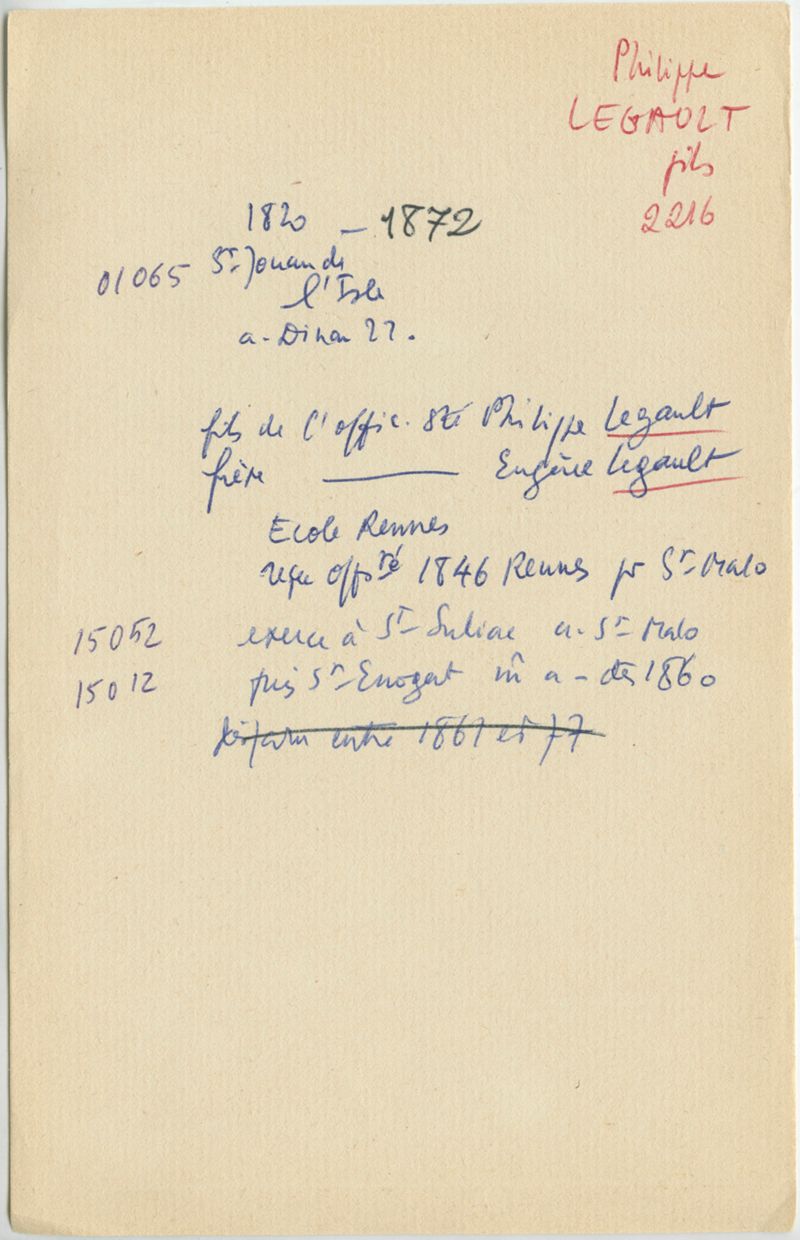 Philippe
LEGAULT
fils
2216
1820 — 1872
01065 St-Jouan de
l'Isle
a - Dinan 22.
fils de l'offic. sté Philippe Legault
frère ——— Eugène Legault
Ecole Rennes
reçu off sté 1846 Rennes pr St-Malo
15052 exerce à St-Suliac a - St-Malo
15012 puis St-Enogat m̂ a - dès 1860
disparu entre 1861 et 77